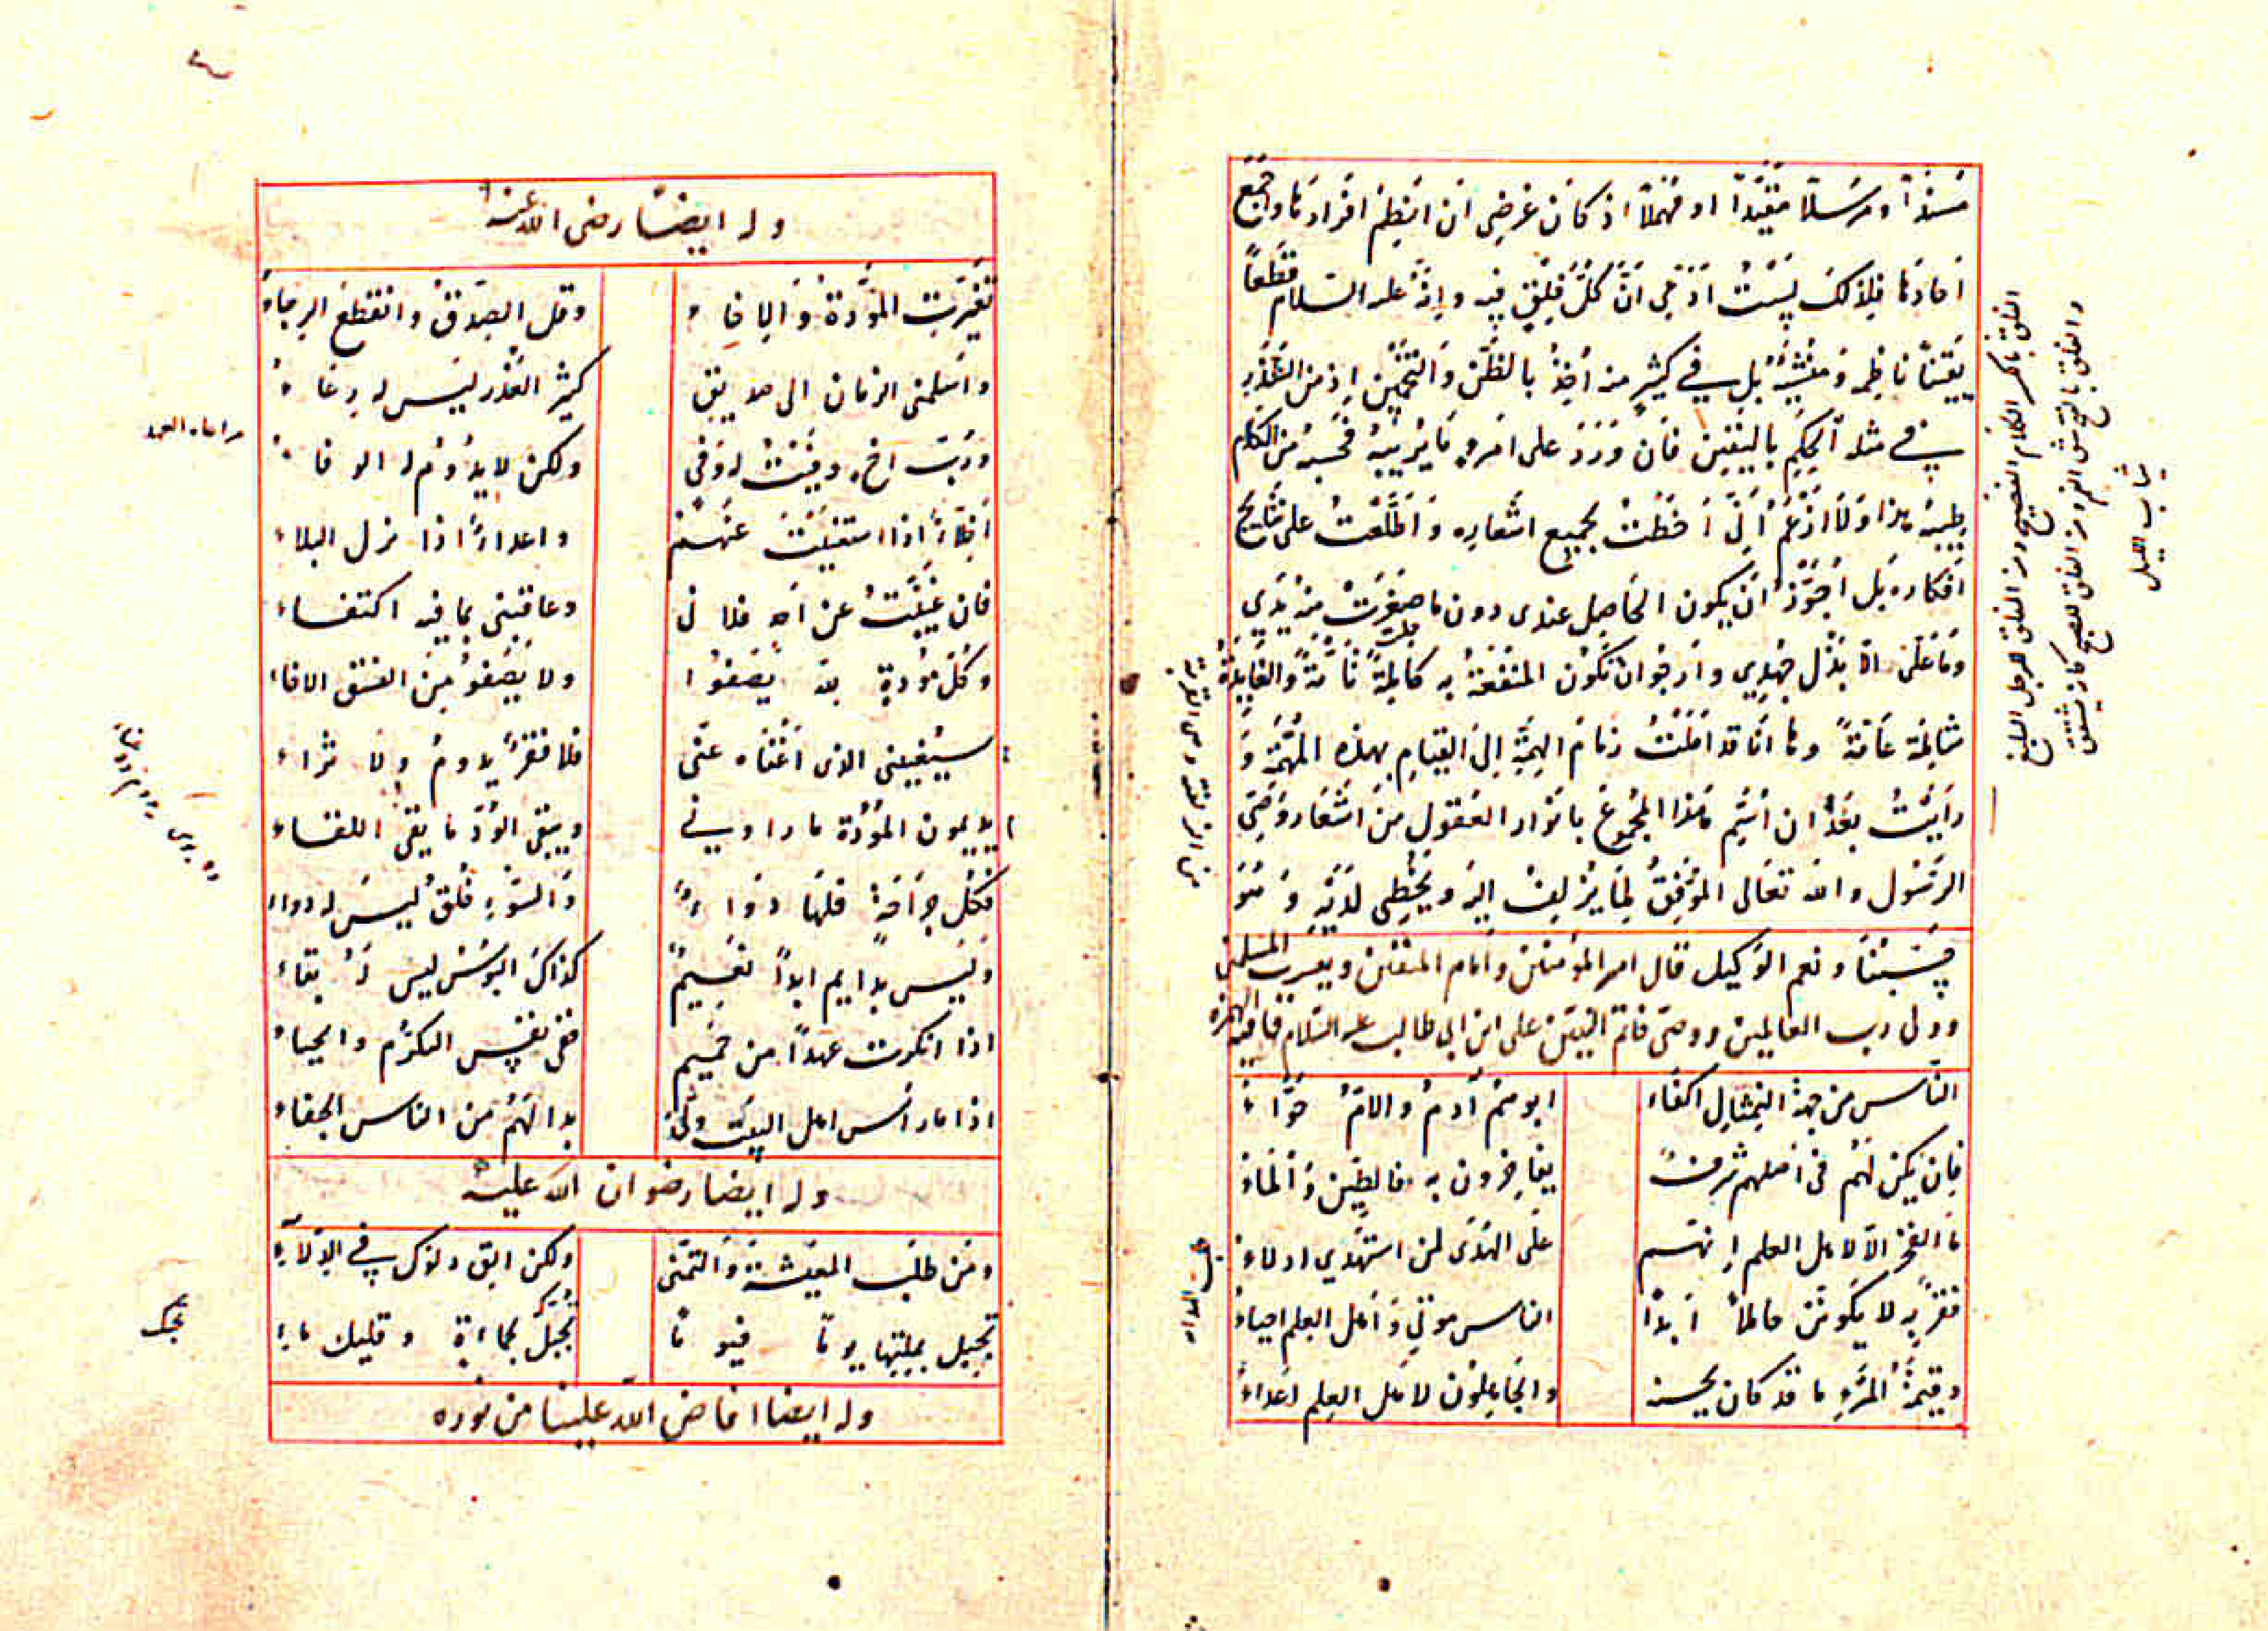 مسندا ومرسلا مقيدا او مهملا اذ كان غرضى ان انظم افرادها واجمع
آحادها فلذلك لست ادعى ان كل فلق فيه وانه عليه السلام قطعا
يقينا ناظمه ومنشيه بل فى كثير منه أخذ بالظن والتخمين اذ من العذر
فى مثله الحكم باليقين فان ورد على امرء ما يريبه فحسبه من الكلام
طيبه هذا ولا ازعم انى احطت بجميع اشعاره واطلعت على نتايج
افكاره بل اجوز ان يكون الحاصل عندى دون ما صفرت منه يدي
وما على الا بذل جهدي وارجو ان تكون المنفعة به كاملة تامة والفايدة
شاملة عامة وها انا قد املت زمام الهمة الى القيام بهذه المهمة و
رأيت بعد ان أتيم هذا المجموع بانوار العقول من اشعار وصى
الرسول والله تعالى الموفق لما يزلف اليه ويحظى لديه و هو
حسبنا ونعم الوكيل قال امير المؤمنين وامام المتقين ويعسوب المسلمين
وولى رب العالمين ووصى خاتم النبيين على ابن ابى طالب عليه السلام قافية الهمزه
الناس من جهة التمثال اكفاء ابوهم آدم والام حواء
فان يكن لهم فى اصلهم شرف يفاخرون به فالطين والماء
ما الفخر الا لاهل العلم انهم على الهدى لمن استهدي ادلاء
ففز به لا يكونن عالما ابدا الناس موتى واهل العلم احياء
وقيمة المرء ما قد كان يحسنه والجاهلون لاهل العلم اعداء
الفلق بالكسر الكلام الفصيح ومنه الفلق للرجل البليغ
والفلق بالفتح شق الفجر ومنه الفلق للصبح كانه يشتق
ثياب الليل
وله ايضا رضى الله عنه
تغيرت المودة والاخاء وقل الصدق وانقطع الرجاء
واسلمنى الزمان الى صديق كثير الغدر ليس له رعاء
ورب اخ وفيت له وفى ولكن لا يدوم له الوفاء
اخلاء اذا استغنيت عنهم واعداء اذا نزل البلاء
فان غيبت عن احد قلانى وعاقبنى بما فيه اكتفاء
وكل مودة لله يصفوا ولا يصفو من الفسق الاخاء
سيغنينى الذى اغناه عنى فلا فقر يدوم ولا ثراء
يديمون المودة ما راونى ويبقى الود ما يبقى اللقاء
فكل جراحة فلها دواء والسوء خلق ليس له دواء
وليس بدايم ابدا نعيم كذاك البوس ليس له بقاء
اذا انكرت عهدا من حميم ففى نفسى التكرم والحياء
اذا ما رأس اهل البيت ولى بدا لهم من الناس الجفاء
وله ايضا رضوان الله عليه
ومن طلب المعيشة والتمنى ولكن الق دلوك فى الدلاء
تجيك بملئها يوما فيوما تجيك بحمأة وقليل ماء
وله ايضا افاض الله علينا من نوره